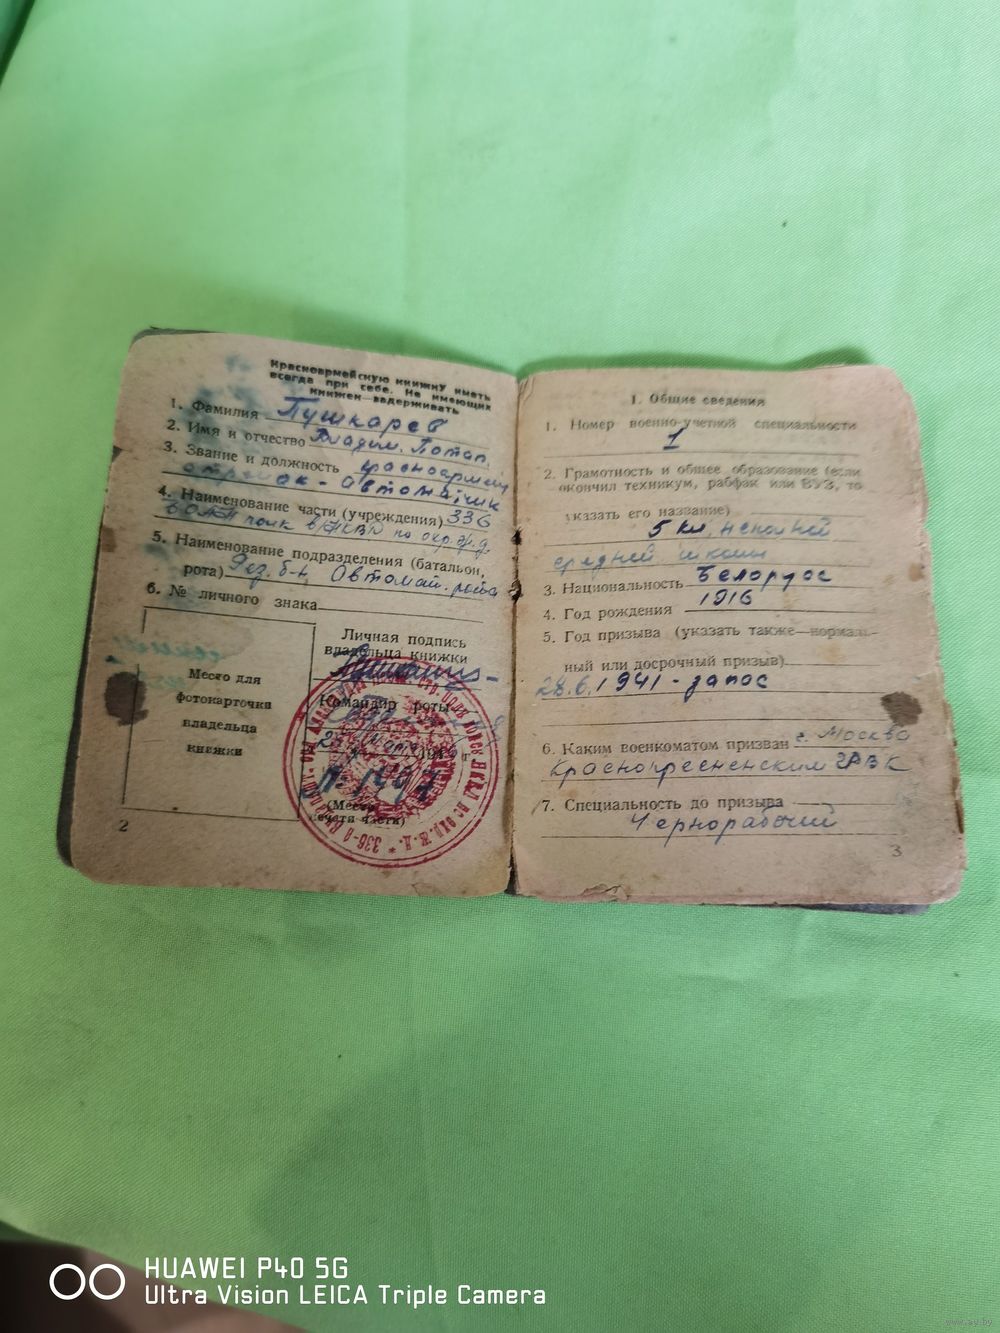 Красноармейскую книжку иметь
всегда при себе. Не имеющих
книжек—задерживать
1. Фамилия Пушкарев
2. Имя и отчество Владим. Потап.
3. Звание и должность красноармеец
стрелок - автоматчик
4. Наименование части (учреждения) 336
полк НКВД по охр. ж.д.
5. Наименование подразделения (батальон,
рота) Рез. б-н, Автомат. рота
6. № личного знака
Место для
фотокарточки
владельца
книжки
Личная подпись
владельца книжки
Командир роты
(Место
печати части)
2
1. Общие сведения
1. Номер военно-учетной специальности
1
2. Грамотность и общее образование (если
окончил техникум, рабфак или ВУЗ, то
указать его название)
5 кл. неполной
средней школы
3. Национальность Белорус
4. Год рождения 1916
5. Год призыва (указать также—нормаль-
ный или досрочный призыв)
28.6.1941 - запас
6. Каким военкоматом призван г. Москва
Краснопресненским РВК
7. Специальность до призыва
Чернорабочий
3
HUAWEI P40 5G
Ultra Vision LEICA Triple Camera
www.ay.by